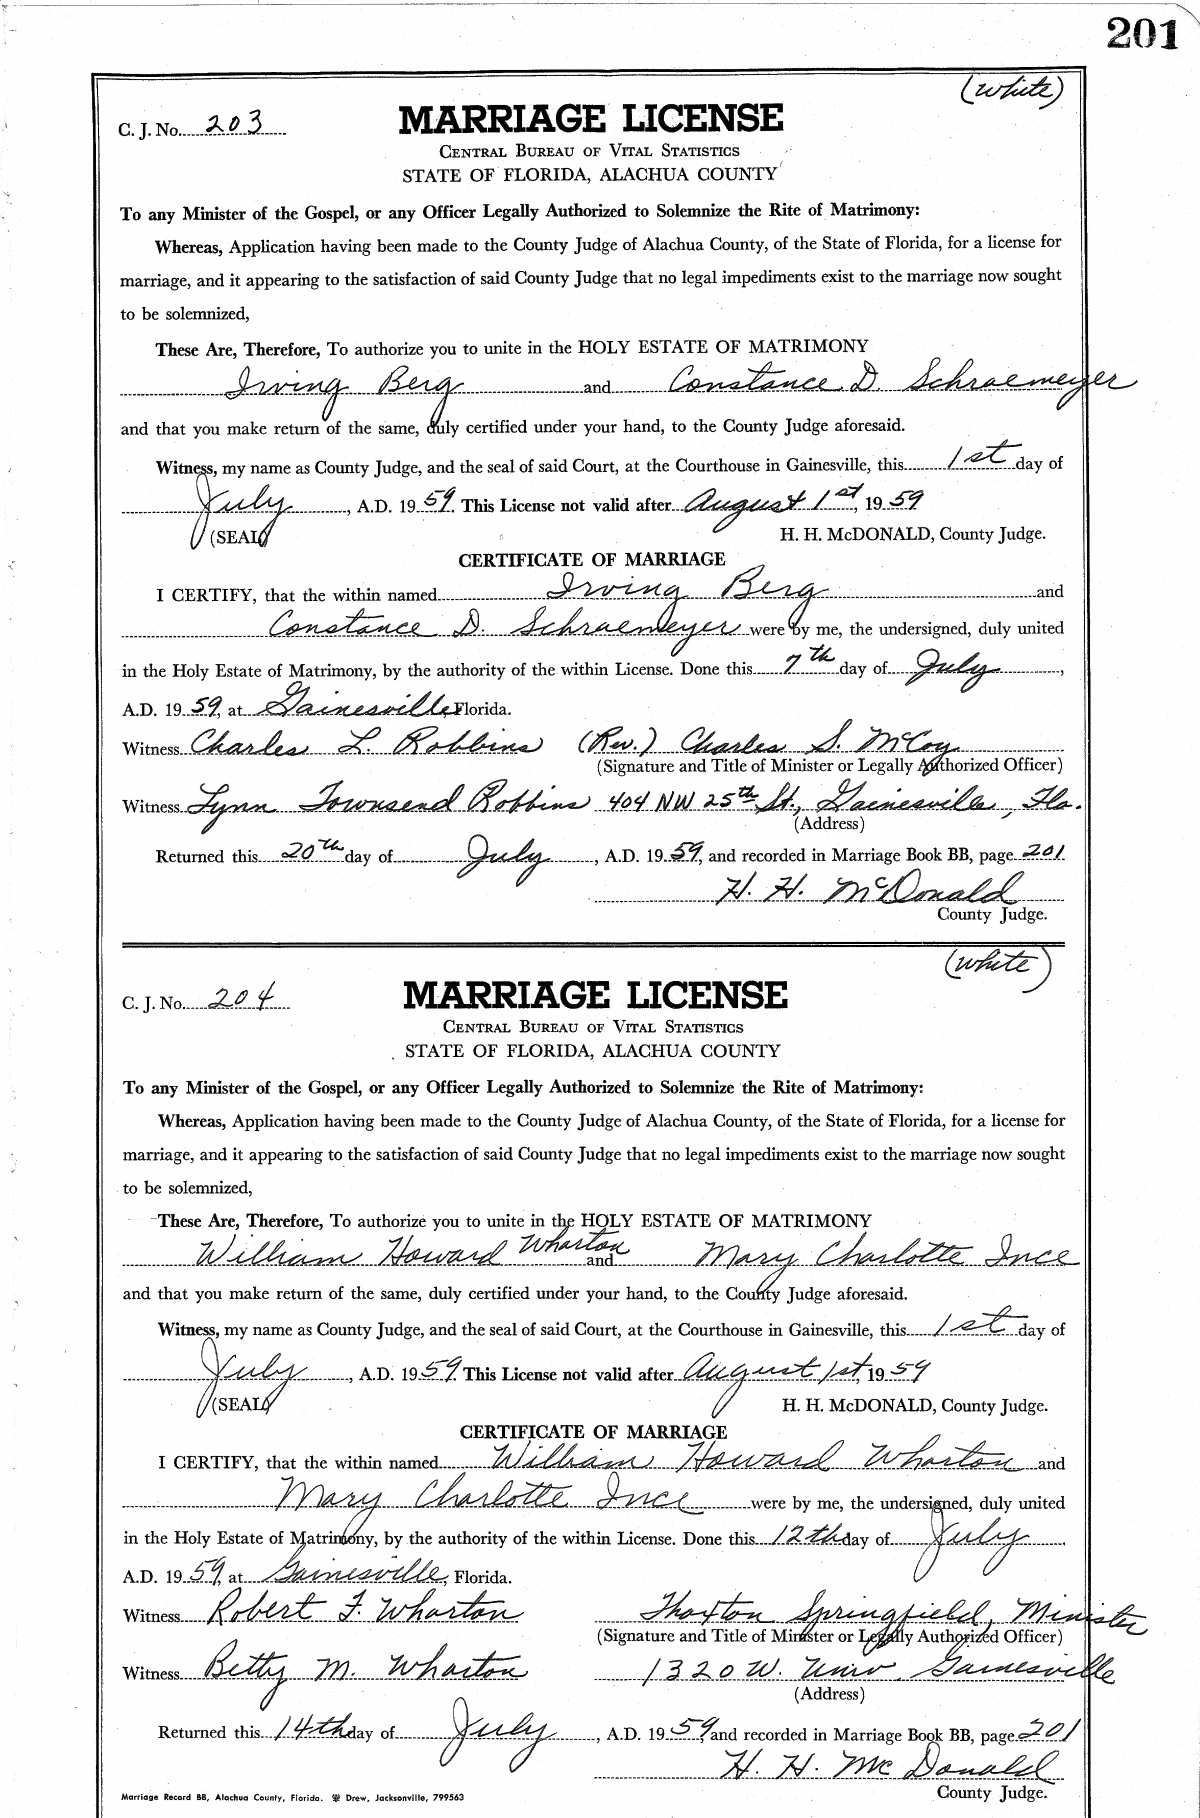 201
(White)
C. J. No. 203 MARRIAGE LICENSE
CENTRAL BUREAU OF VITAL STATISTICS
STATE OF FLORIDA, ALACHUA COUNTY
To any Minister of the Gospel, or any Officer Legally Authorized to Solemnize the Rite of Matrimony:
Whereas, Application having been made to the County Judge of Alachua County, of the State of Florida, for a license for
marriage, and it appearing to the satisfaction of said County Judge that no legal impediments exist to the marriage now sought
to be solemnized,
These Are, Therefore, To authorize you to unite in the HOLY ESTATE OF MATRIMONY
Irving Berg and Constance D. Schraemeyer
and that you make return of the same, duly certified under your hand, to the County Judge aforesaid.
Witness, my name as County Judge, and the seal of said Court, at the Courthouse in Gainesville, this 1st day of
July, A.D. 1959. This License not valid after August 1st, 1959
(SEAL) H. H. McDONALD, County Judge.
CERTIFICATE OF MARRIAGE
I CERTIFY, that the within named Irving Berg and
Constance D. Schraemeyer were by me, the undersigned, duly united
in the Holy Estate of Matrimony, by the authority of the within License. Done this 7th day of July,
A.D. 1959, at Gainesville, Florida.
Witness Charles L. Robbins (Rev.) Charles S. McCoy
(Signature and Title of Minister or Legally Authorized Officer)
Witness Lynn Townsend Robbins 404 NW 25th St., Gainesville, Fla.
(Address)
Returned this 20th day of July, A.D. 1959, and recorded in Marriage Book BB, page 201
H. H. McDonald
County Judge.
(White)
C. J. No. 204 MARRIAGE LICENSE
CENTRAL BUREAU OF VITAL STATISTICS
STATE OF FLORIDA, ALACHUA COUNTY
To any Minister of the Gospel, or any Officer Legally Authorized to Solemnize the Rite of Matrimony:
Whereas, Application having been made to the County Judge of Alachua County, of the State of Florida, for a license for
marriage, and it appearing to the satisfaction of said County Judge that no legal impediments exist to the marriage now sought
to be solemnized,
These Are, Therefore, To authorize you to unite in the HOLY ESTATE OF MATRIMONY
William Howard Wharton and Mary Charlotte Ince
and that you make return of the same, duly certified under your hand, to the County Judge aforesaid.
Witness, my name as County Judge, and the seal of said Court, at the Courthouse in Gainesville, this 1st day of
July, A.D. 1959. This License not valid after August 1st, 1959
(SEAL) H. H. McDONALD, County Judge.
CERTIFICATE OF MARRIAGE
I CERTIFY, that the within named William Howard Wharton and
Mary Charlotte Ince were by me, the undersigned, duly united
in the Holy Estate of Matrimony, by the authority of the within License. Done this 12th day of July,
A.D. 1959, at Gainesville, Florida.
Witness Robert F. Wharton Thoxton Springfield, Minister
(Signature and Title of Minister or Legally Authorized Officer)
Witness Betty M. Wharton 1320 W. Univ. Gainesville
(Address)
Returned this 14th day of July, A.D. 1959, and recorded in Marriage Book BB, page 201
H. H. McDonald
County Judge.
Marriage Record BB, Alachua County, Florida. Drew, Jacksonville, 799563